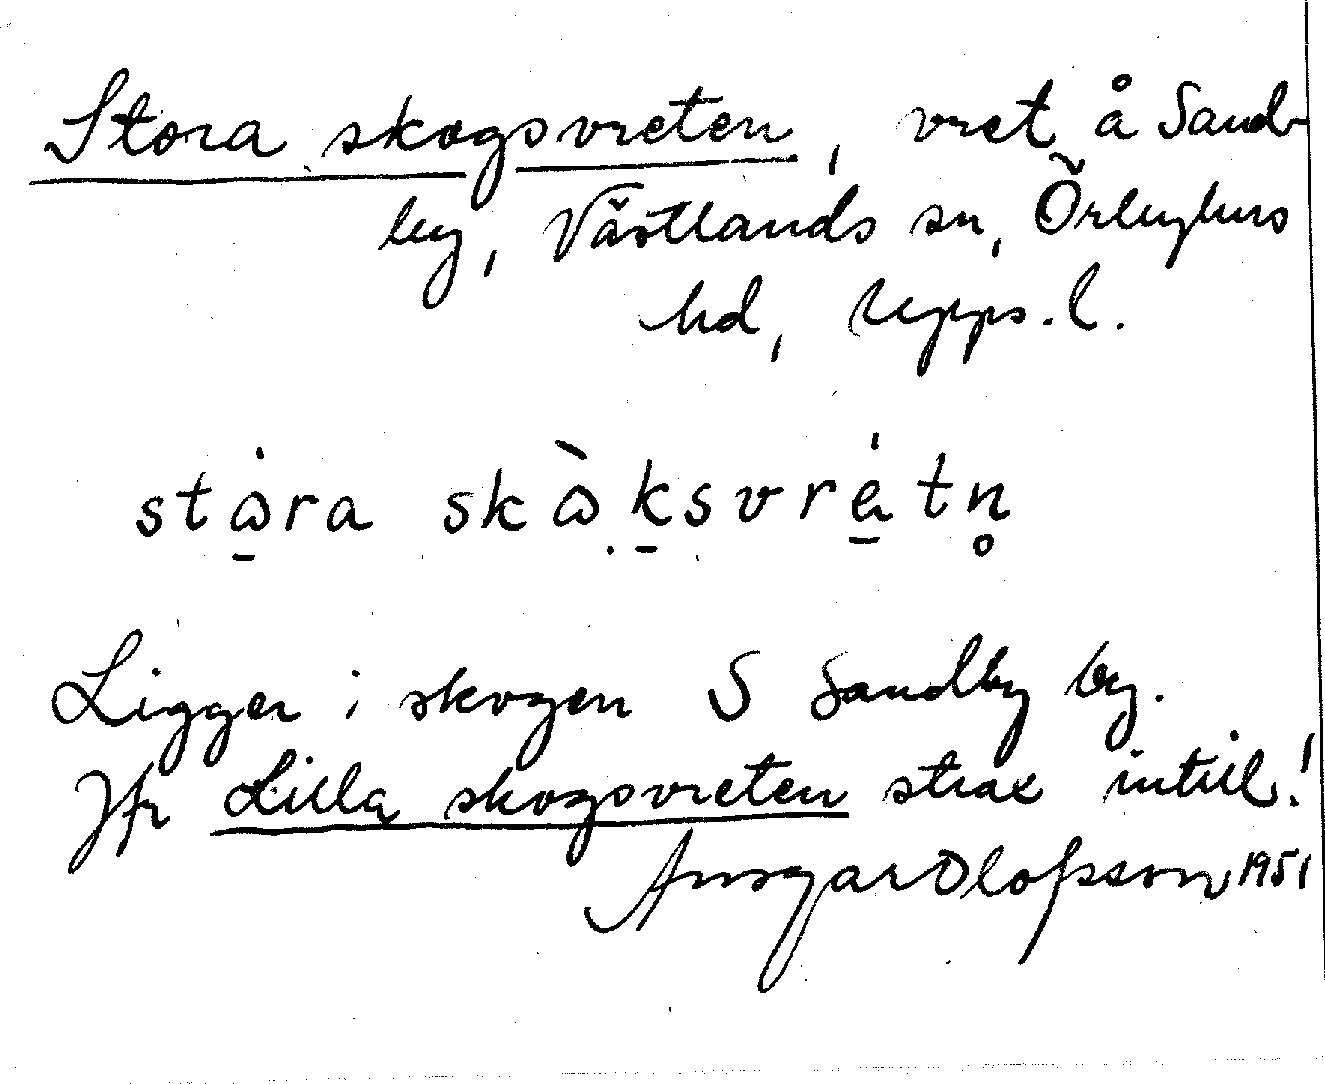 Stora skogsvreten, vret å Sand-
by, Västlands sn, Örbyhus
hd, Upps. l.
stɷ̠́ra skɷ̀ḵsvré̠tn̥
Ligger i skogen S Sandby by.
Jfr Lilla skogsvreten strax intill!
Ansgar Olofsson 1951